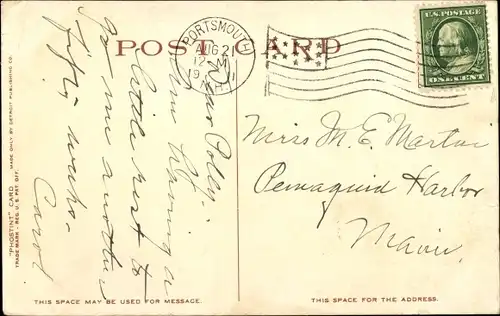 POST CARD
PORTSMOUTH
AUG 21
12
19
N.H.
U.S. POSTAGE
ONE CENT
Dear Polly.
Am having a
little rest to
do me another
fifty weeks.
Carol
Miss M. E. Martin
Pemaquid Harbor
Maine
"PHOSTINT" CARD MADE ONLY BY DETROIT PUBLISHING CO.
TRADE MARK - REG. U. S. PAT. OFF.
THIS SPACE MAY BE USED FOR MESSAGE.
THIS SPACE FOR THE ADDRESS.